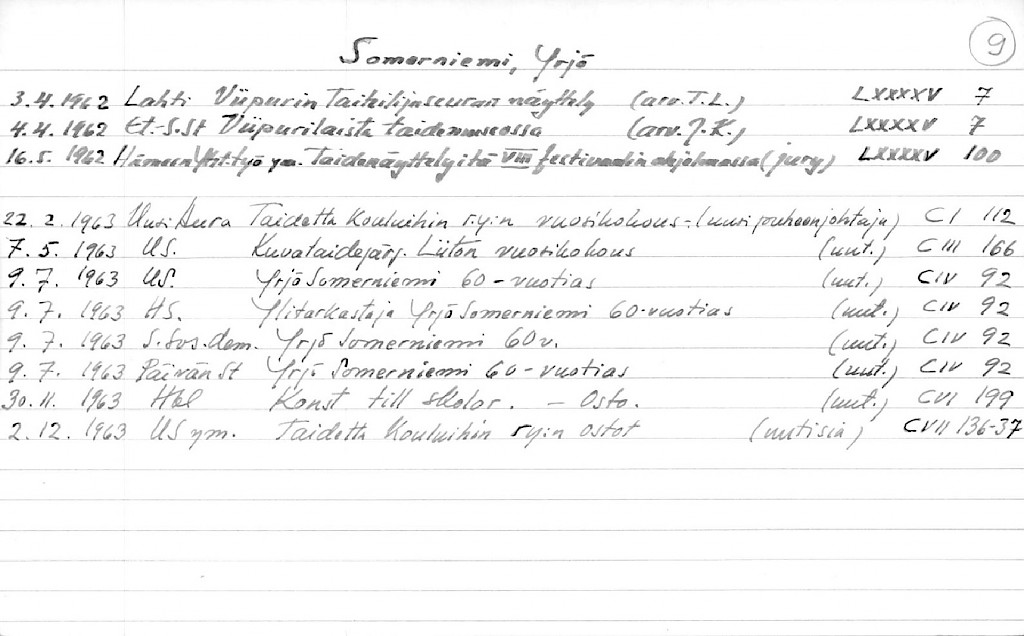 9
Somerniemi, Yrjö
3.4.1962 Lahti Viipurin Taiteilijaseuran näyttely (arv. T.L.) LXXXXV 7
4.4.1962 Et.-S.St Viipurilaista taidemuseossa (arv. J.K.) LXXXXV 7
16.5.1962 Hämeen Yht.työ ym. Taidenäyttelyitä VIII festivaalin ohjelmassa (jury) LXXXXV 100
22.2.1963 Uusi Aura Taidetta Kouluihin r.y:n vuosikokous - (uusi puheenjohtaja) CI 112
7.5.1963 US. Kuvataidejärj. Liiton vuosikokous (uut.) CIII 166
9.7.1963 US. Yrjö Somerniemi 60-vuotias (uut.) CIV 92
9.7.1963 HS. Ylitarkastaja Yrjö Somerniemi 60-vuotias (uut.) CIV 92
9.7.1963 S.Sos.dem. Yrjö Somerniemi 60v. (uut.) CIV 92
9.7.1963 Päivän St Yrjö Somerniemi 60-vuotias (uut.) CIV 92
30.11.1963 Hbl Konst till skolor. - Osto. (uut.) CVI 199
2.12.1963 US ym. Taidetta Kouluihin ry:n ostot (uutisia) CVII 136-37